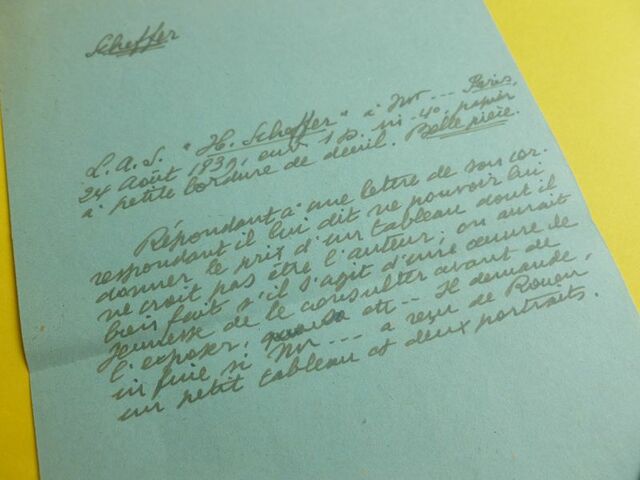 Scheffer
L.A.S. "H. Scheffer" à Mr --- Paris,
24 Août 1839, env. 1 p. in-4o, papier
à petite bordure de deuil. Belle pièce.
Répondant à une lettre de son cor-
respondant il lui dit ne pouvoir lui
donner le prix d'un tableau dont il
ne croit pas être l'auteur; on aurait
bien fait s'il s'agit d'une œuvre de
jeunesse de le consulter avant de
l'exposer, etc -- Il demande,
in fine si Mr --- a reçu de Rouen
un petit tableau et deux portraits.